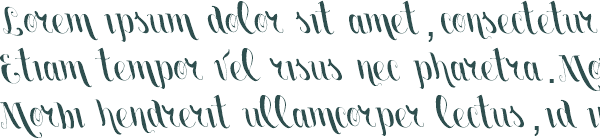 Lorem ipsum dolor sit amet, consectetur
Etiam tempor vel risus nec pharetra. Mo
Morbi hendrerit ullamcorper lectus, id